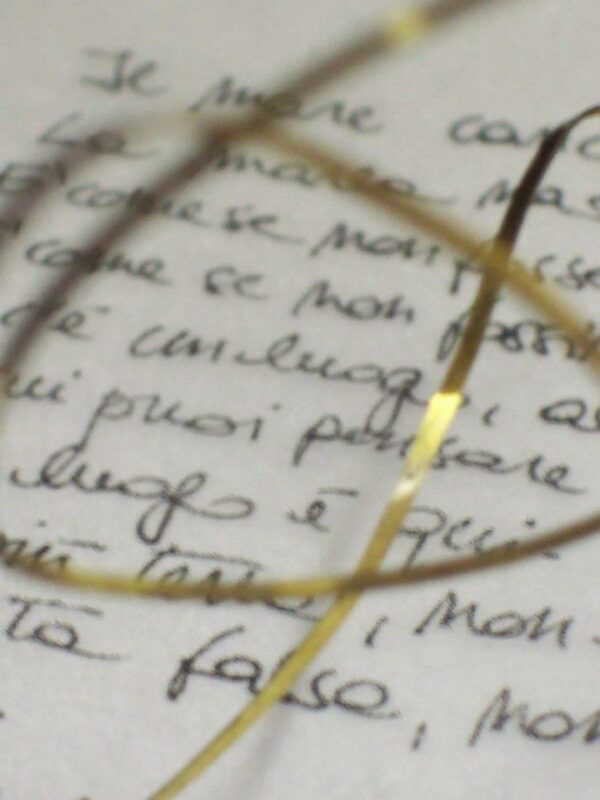 Il mare canc
La marea nas
E' come se non fosse
come se non fossi
c'è un luogo, al
cui puoi pensare
luogo è qui
più terra, non
tà falsa, non